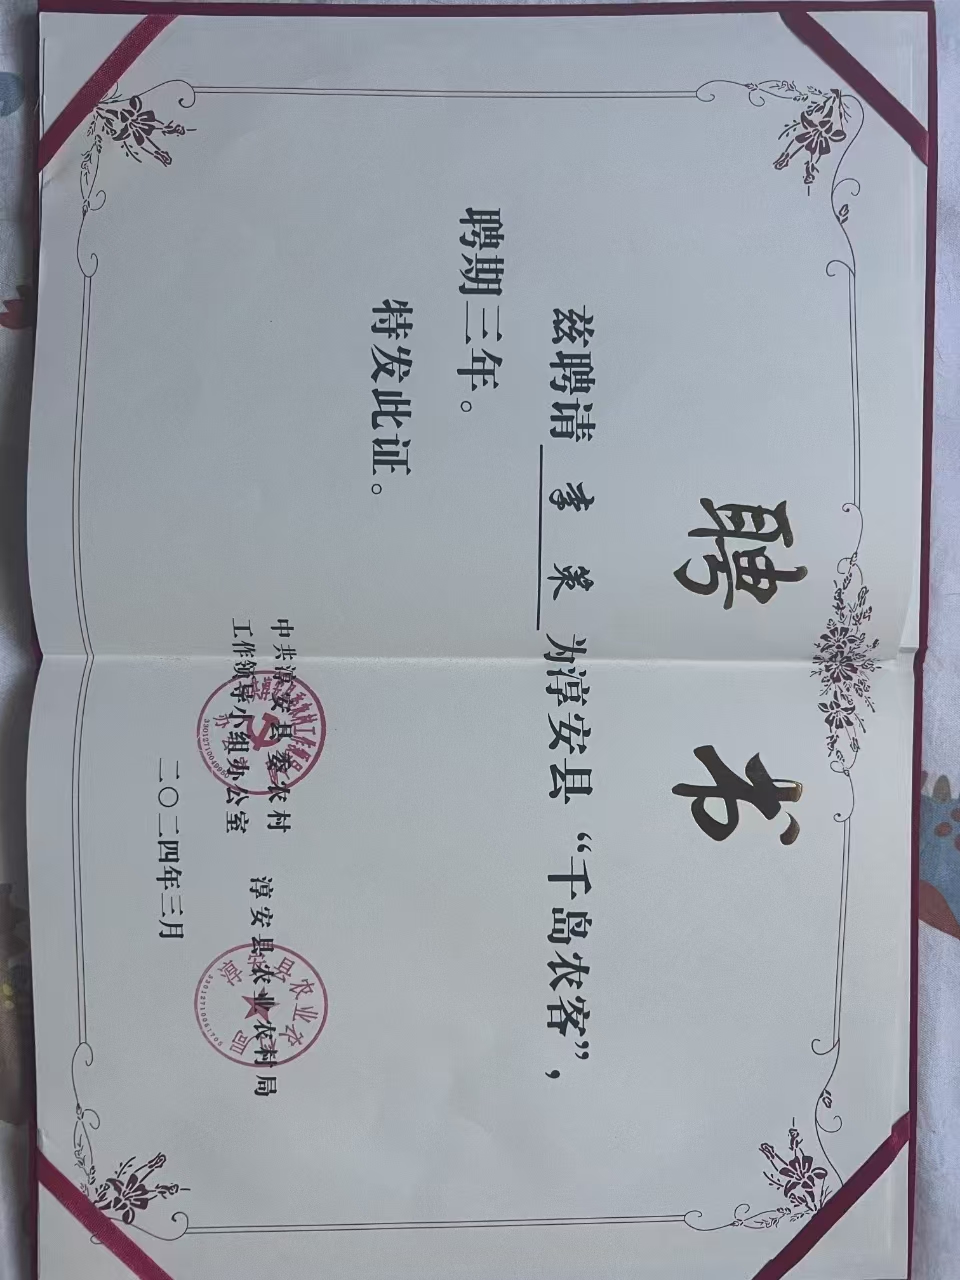 聘书
兹聘请 李策 为淳安县“千岛农客”，
聘期三年。
特发此证。
中共淳安县委农村
工作领导小组办公室
淳安县农业农村局
二〇二四年三月